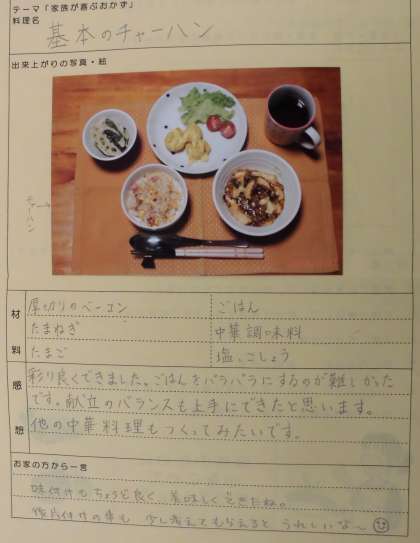 テーマ「家族が喜ぶおかず」
料理名
基本のチャーハン
出来上がりの写真・絵
チャーハン
材料
厚切りのベーコン
ごはん
たまねぎ
中華調味料
たまご
塩、こしょう
感想
彩り良くできました。ごはんをパラパラにするのが難しかった
です。献立のバランスも上手にできたと思います。
他の中華料理もつくってみたいです。
お家の方から一言
味付けもちょうど良く、美味しくできたね。
後片付けの事も 少し考えてもらえると うれしいな〜